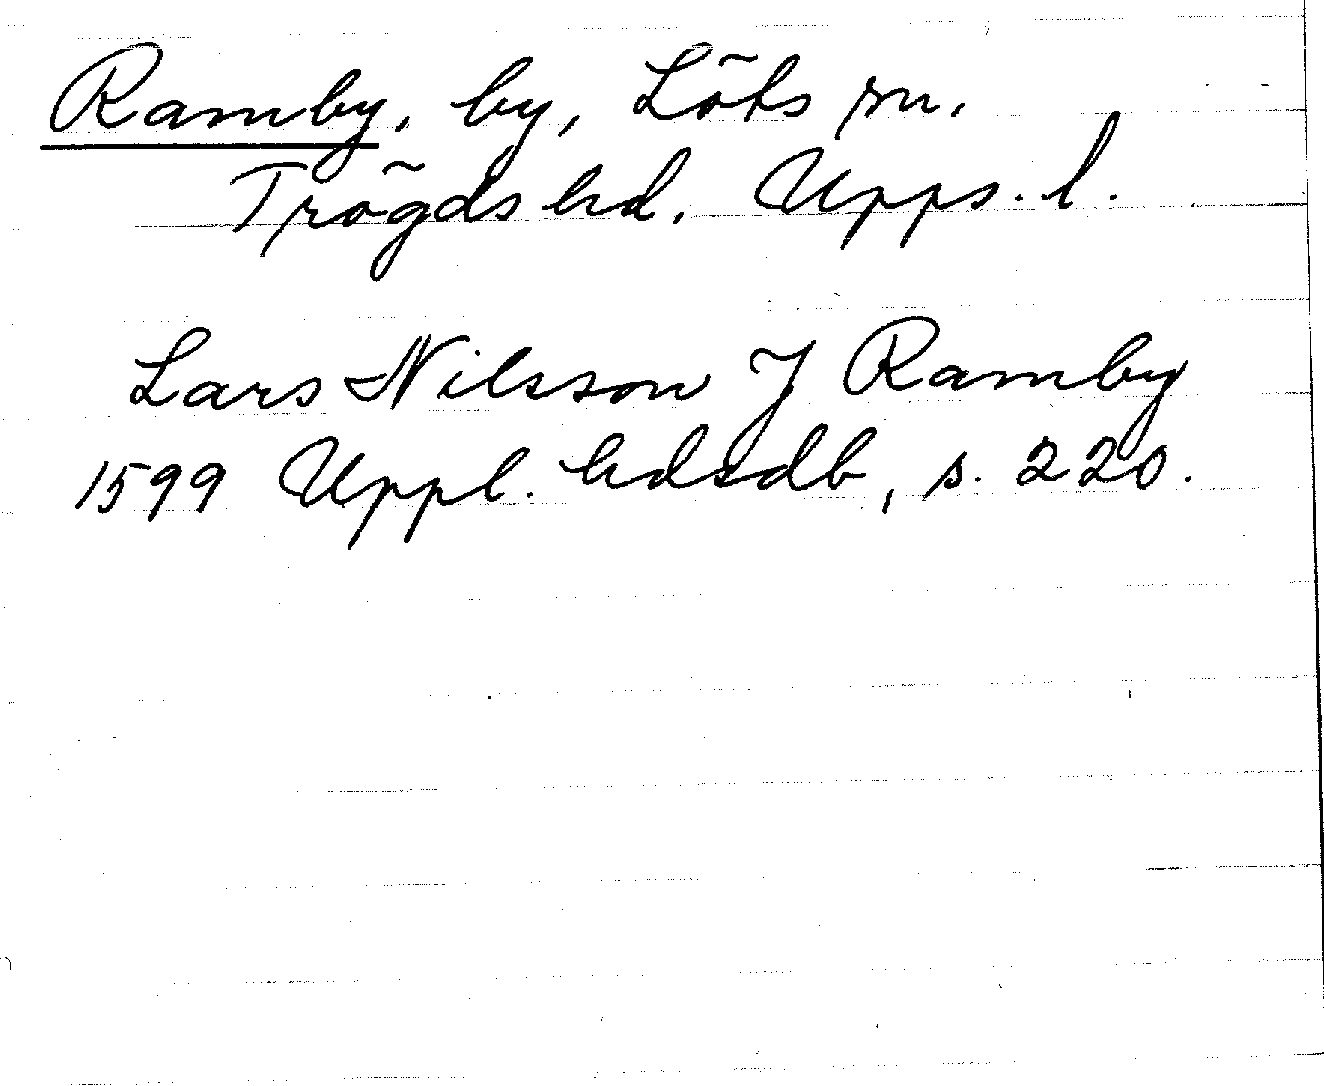 Ramby, by, Löts sn.
Trögds hd. Upps. l.
Lars Nilsson J Ramby
1599 Uppl. hdsdb, s. 220.